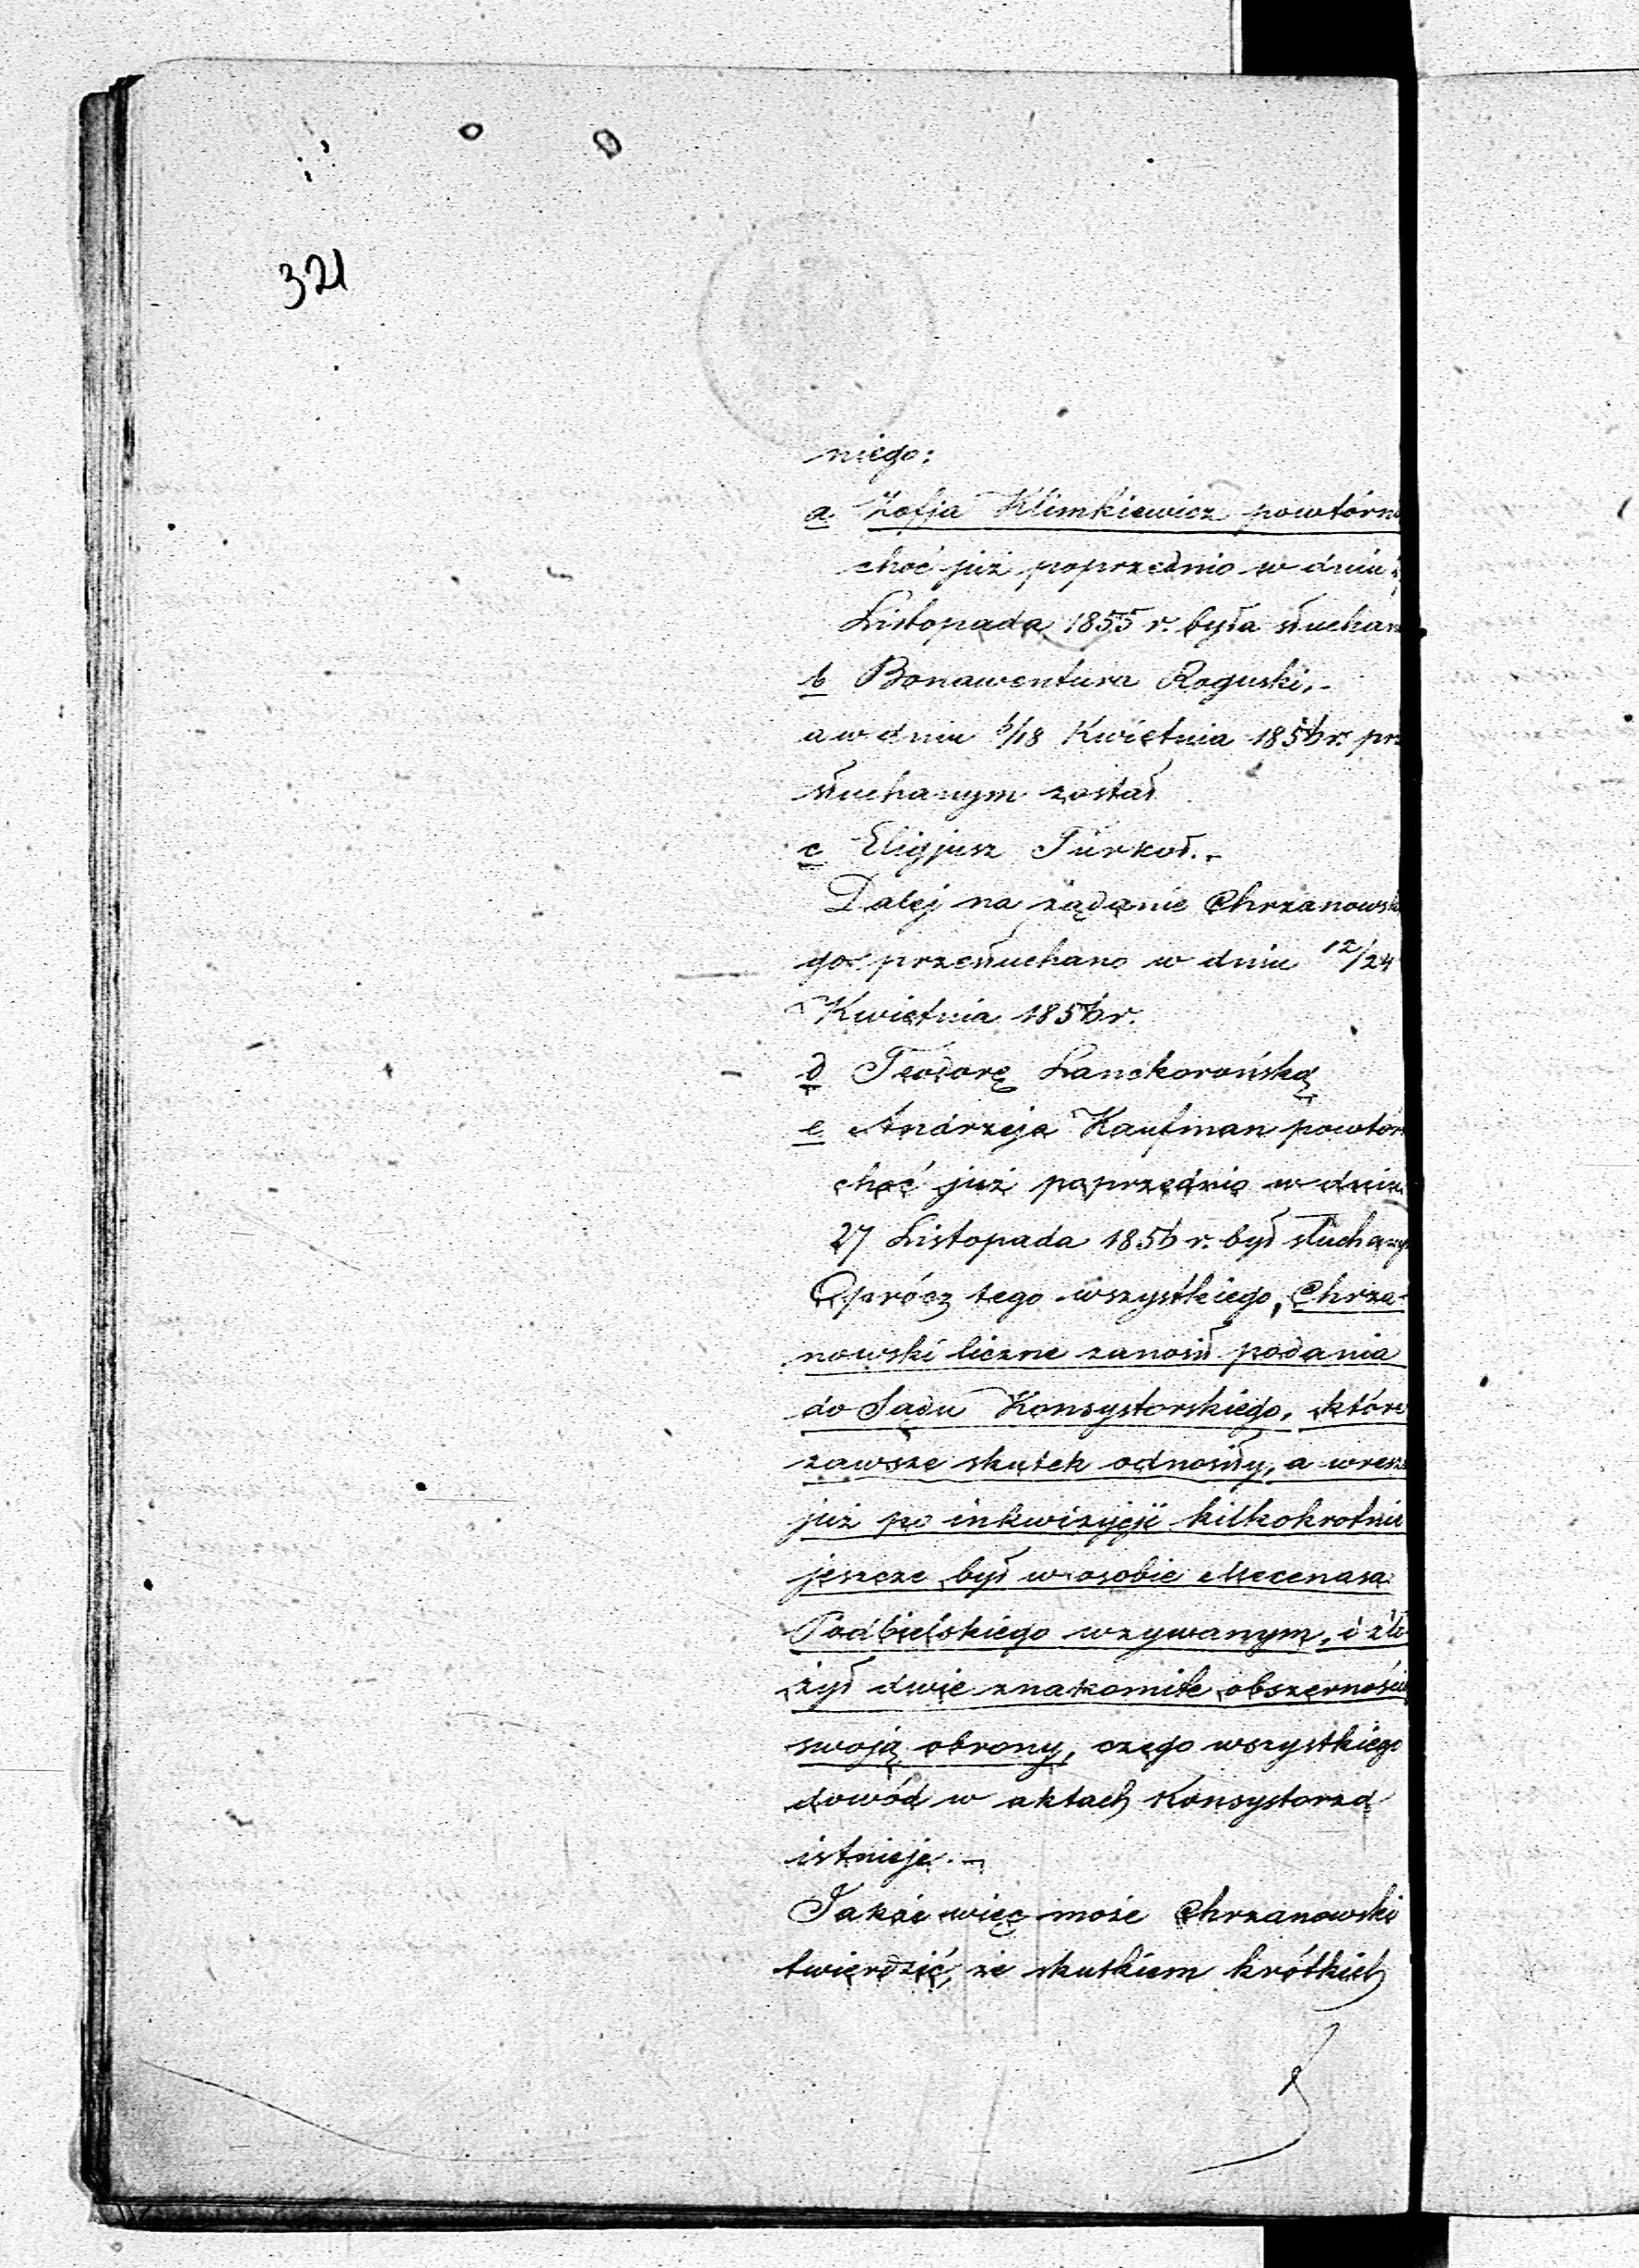 321
niego:
a. Zofja Klimkiewicz powtórn
choć już poprzednio w dniu
Listopada 1855 r. była słuchan
b Bonawentura Roguski.-
a w dniu 6/18 Kwietnia 1856 r. prz
słuchanym został
c Eligjusz Turkoł.-
Dalej na żądanie Chrzanowsk
go przesłuchano w dniu 12/24
Kwietnia 1856 r.
d Teodorę Lanckorońską
e Andrzeja Kaufman powtór
choć już poprzednio w dniu
27 Listopada 1856 r. był słuchany
Oprócz tego wszystkiego, Chrza-
nowski liczne zanosił podania
do Sądu Konsystorskiego, które
zawsze skutek odnosiły, a wresz
już po inkwizycji kilkokrotnie
jeszcze był w osobie Mecenasa
Podbielskiego wzywanym, i zło
żył dwie znakomite obszernością
swoją obrony, czego wszystkiego
dowód w aktach Konsystorza
istnieje.-
Jakże więc może Chrzanowski
twierdzić, że skutkiem krótkich